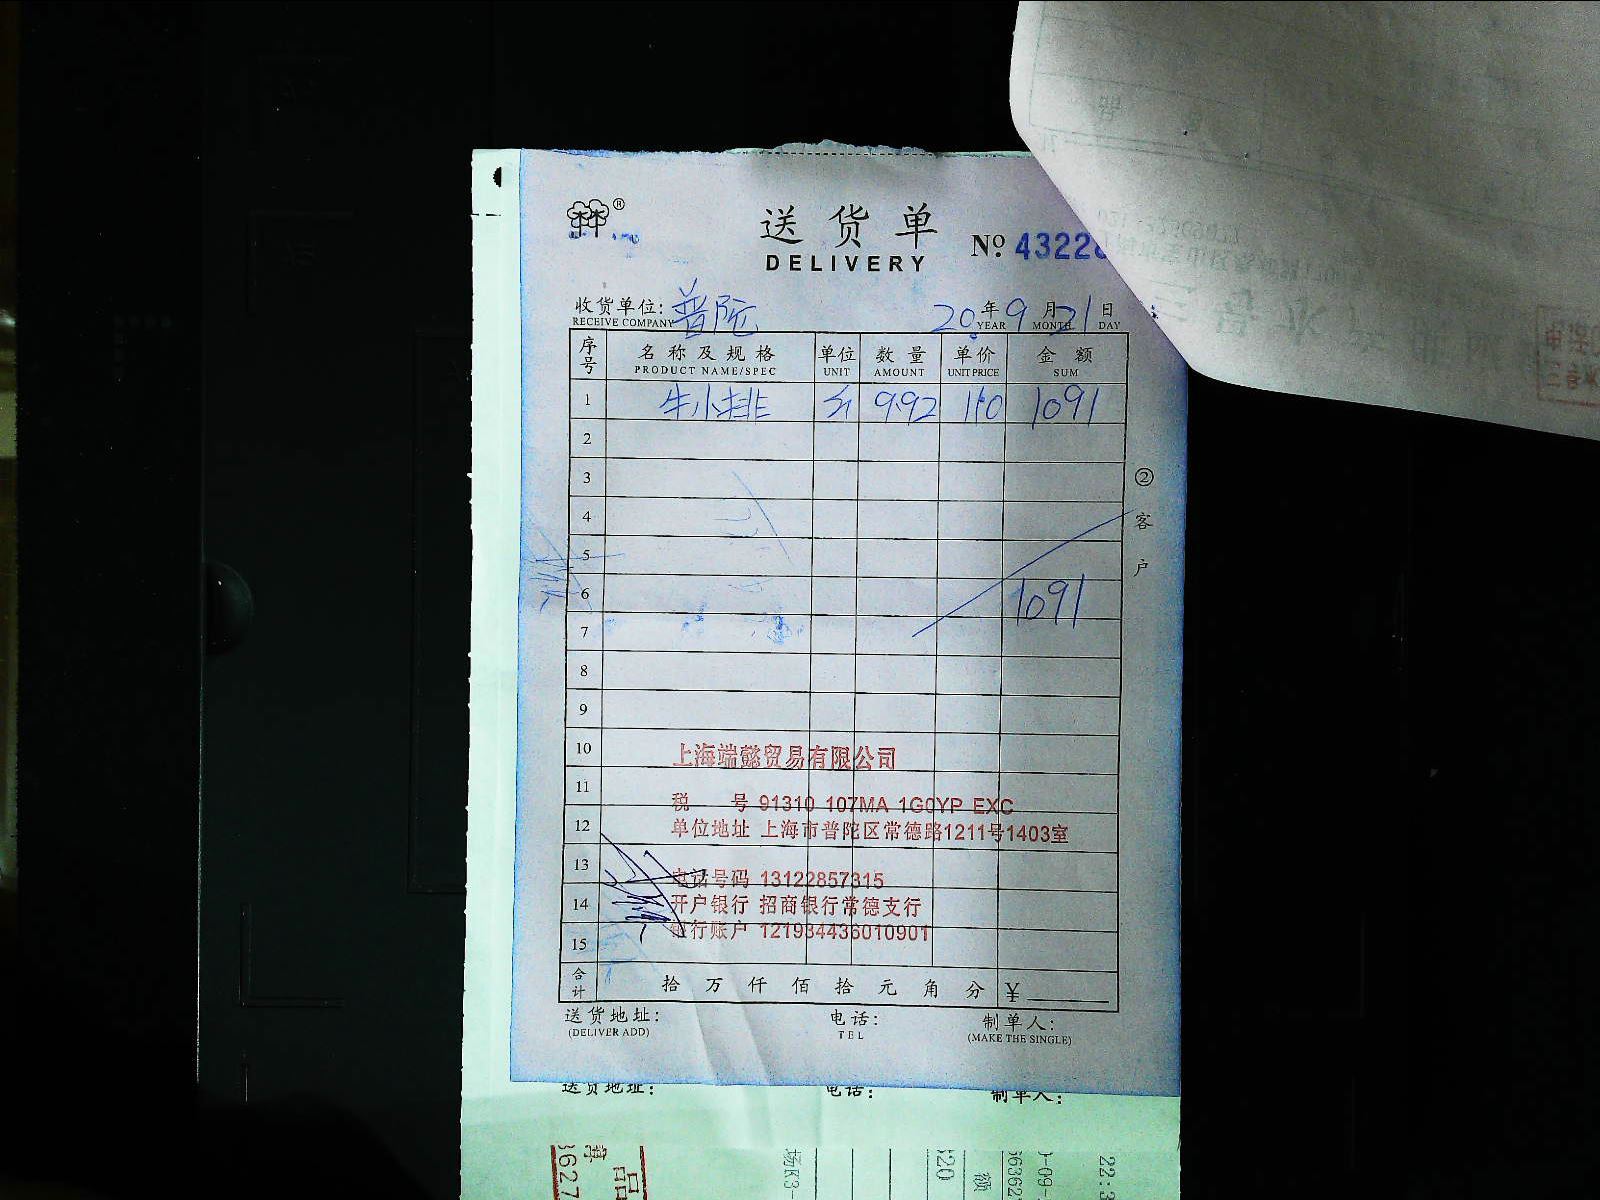 ®
送货单
DELIVERY
№ 43228
收货单位: 普陀 20 年 9 月 21 日
RECEIVE COMPANY YEAR MONTH DAY
序号 名称及规格 单位 数量 单价 金额
PRODUCT NAME/SPEC UNIT AMOUNT UNIT PRICE SUM
1 牛小排 斤 9.92 110 1091
2
3
4
5
6 1091
7
8
9
10
11
12
13
14
15
② 客户
上海端懿贸易有限公司
税 号 91310 107MA 1G0YP EXC
单位地址 上海市普陀区常德路1211号1403室
电话号码 13122857315
开户银行 招商银行常德支行
银行账户 121934436010901
合计 拾 万 仟 佰 拾 元 角 分 ¥
送货地址: 电话: 制单人:
(DELIVER ADD) TEL (MAKE THE SINGLE)
送货地址: 电话: 制单人: